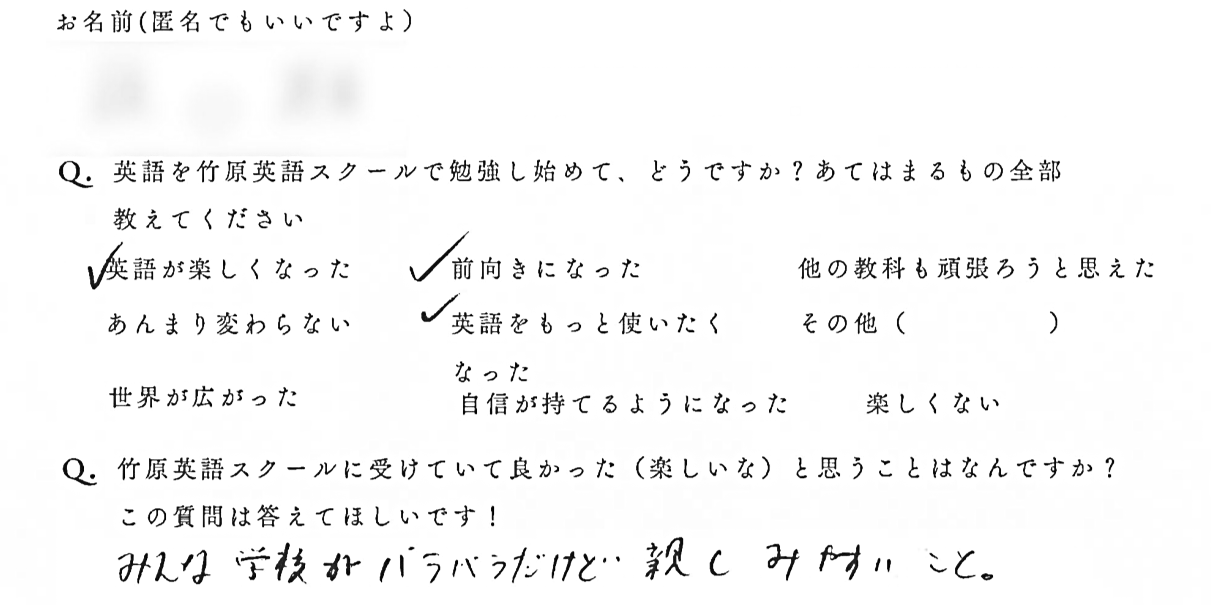 お名前(匿名でもいいですよ)
Q. 英語を竹原英語スクールで勉強し始めて、どうですか？あてはまるもの全部
教えてください
英語が楽しくなった 前向きになった 他の教科も頑張ろうと思えた
あんまり変わらない 英語をもっと使いたく その他（ ）
なった
世界が広がった 自信が持てるようになった 楽しくない
Q. 竹原英語スクールに受けていて良かった（楽しいな）と思うことはなんですか？
この質問は答えてほしいです！
みんな学校がバラバラだけど親しみやすいこと。